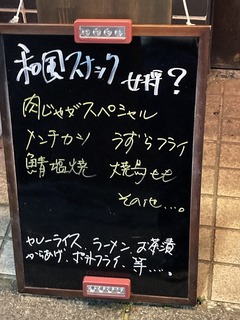 和風スナック 女将?
肉じゃがスペシャル
メンチカツ うずらフライ
鯖塩焼 焼鳥もも
その他…。
カレーライス、ラーメン、お茶漬
からあげ、ポテトフライ、等…。